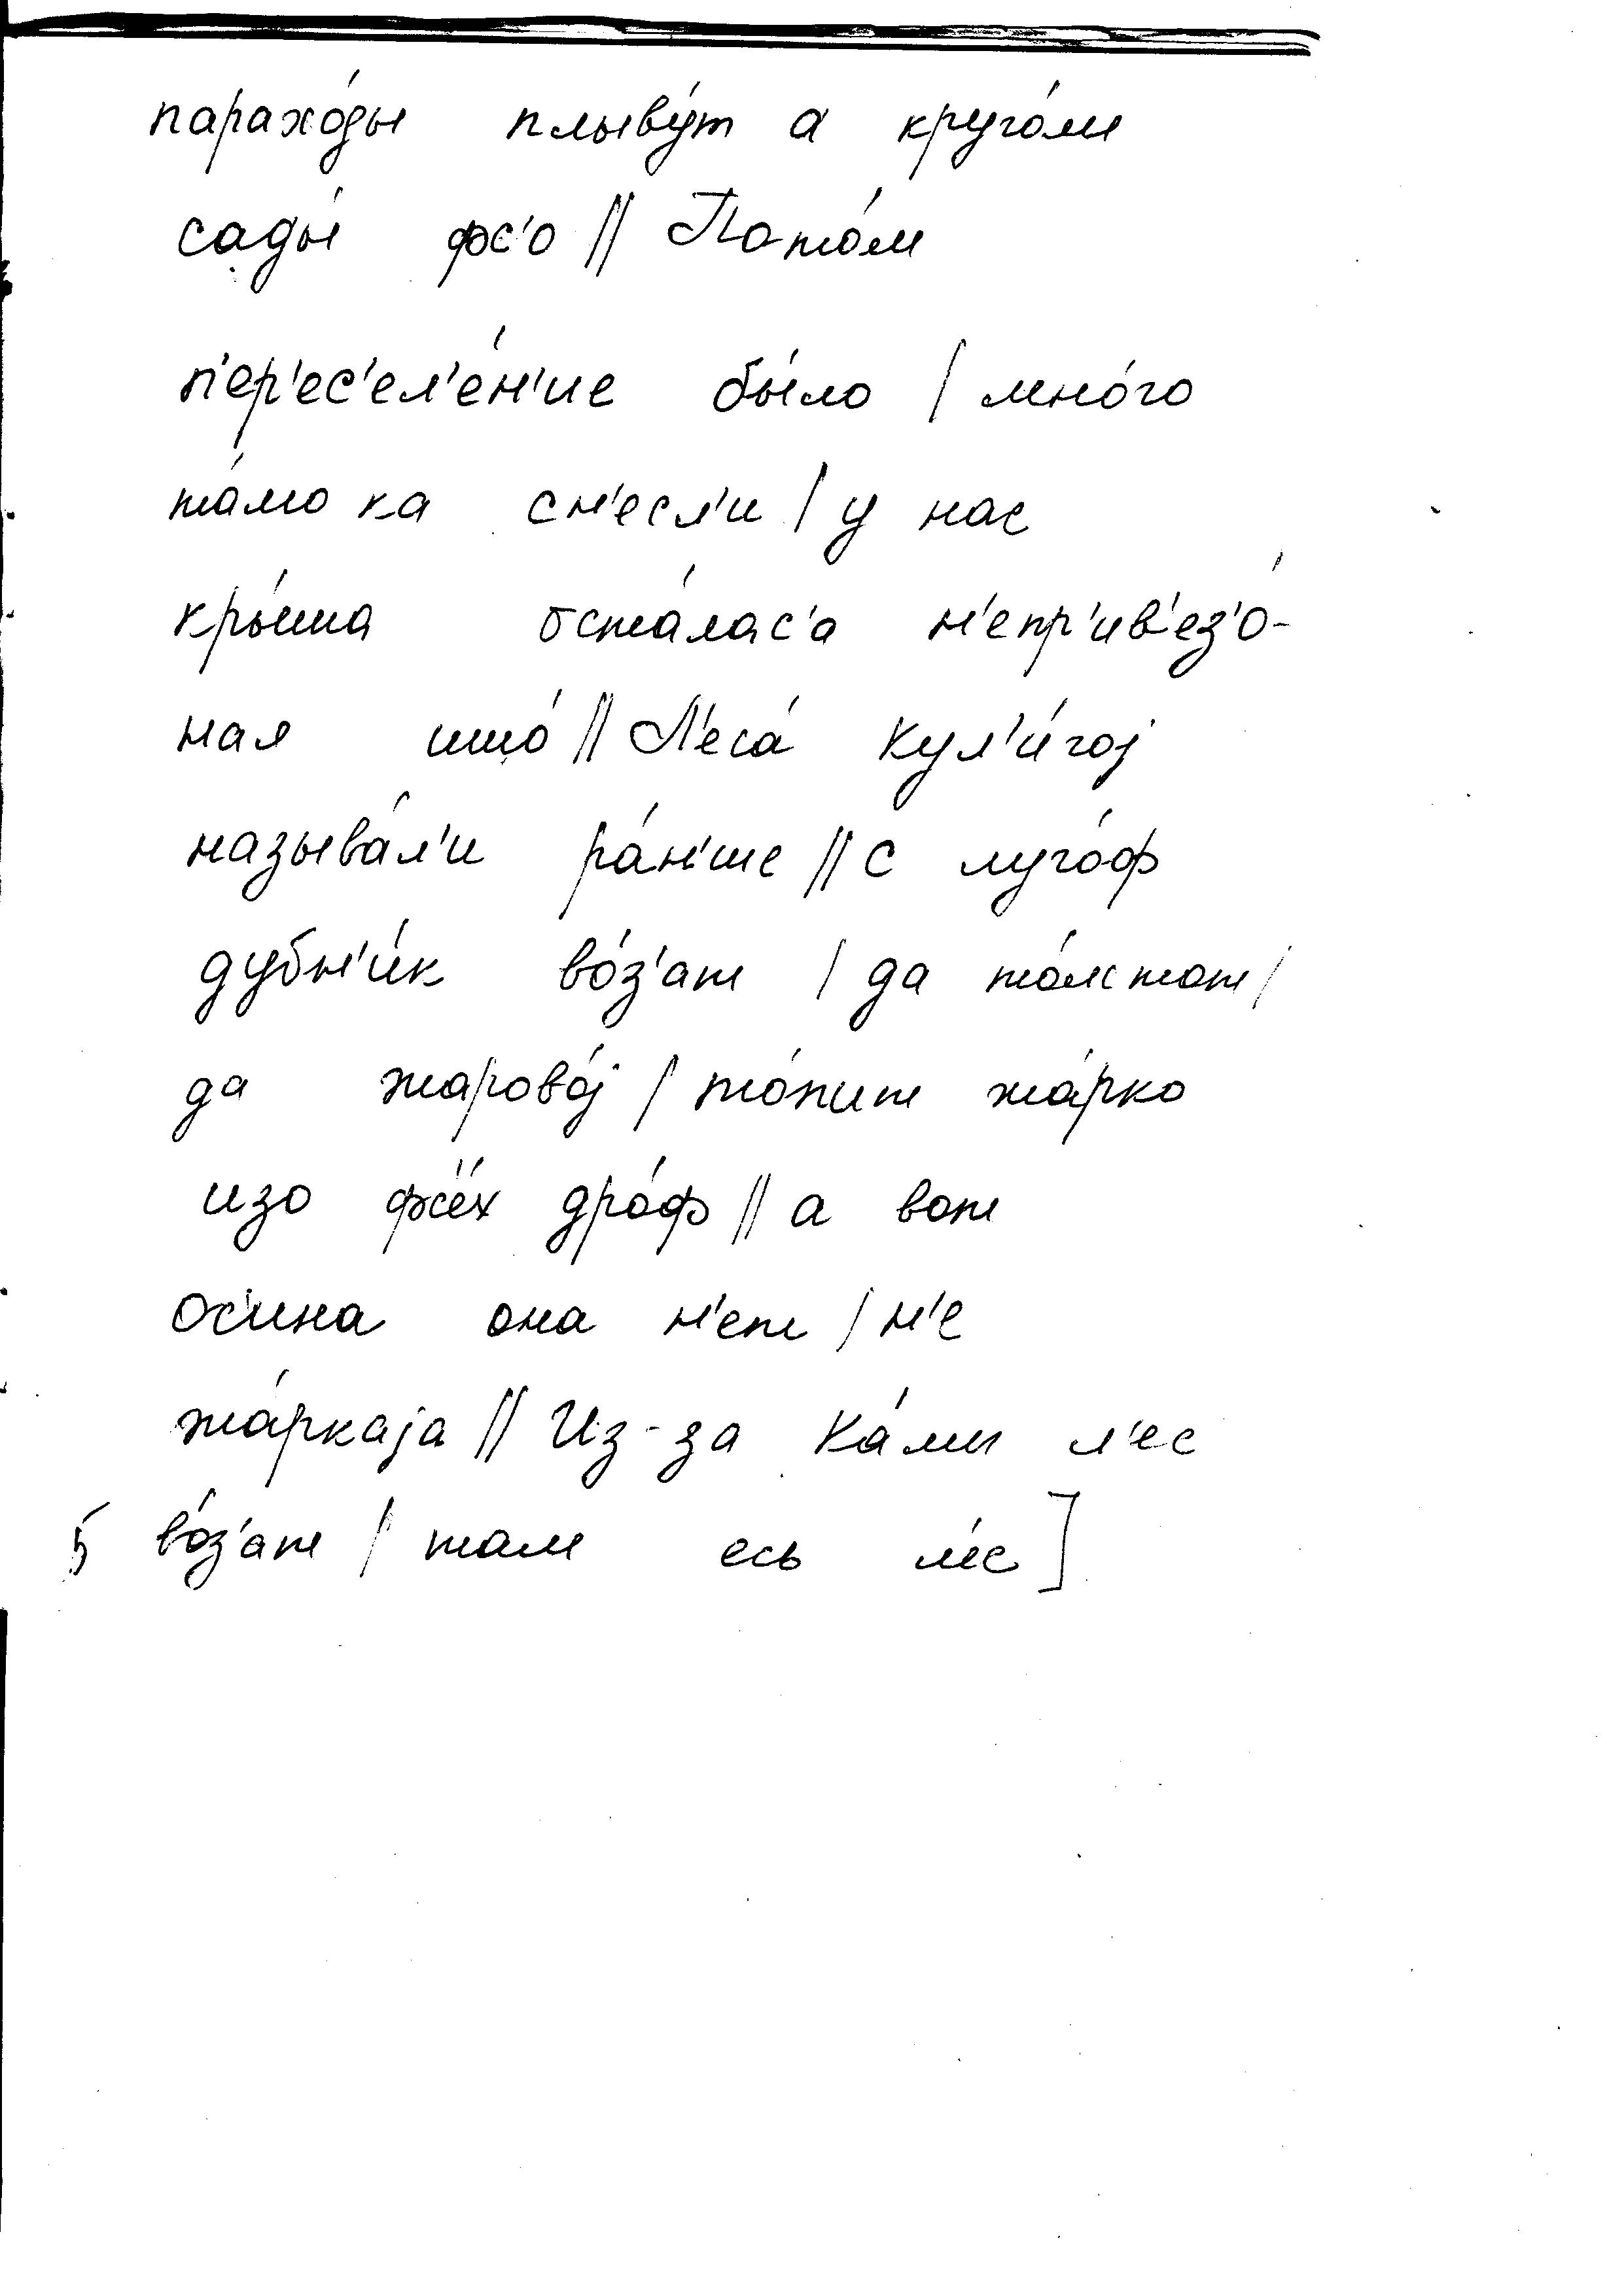 парахо́ды плыву́т а круго́м
сады́ фс'о // Пато́м
п'ер'ес'ел'е́н'ие бы́ло / мно́го
та́мо ка сн'есл'и / у нас
кры́ша оста́лас'а н'епр'ив'ез'о́-
ная што́ // Л'еса́ кул'и́гој
называ́л'и ра́н'ше // с луго́ф
дубн'и́к во́з'ат / да то́лстот /
да жарово́ј / то́пит жа́рко
изо фс'е́х дро́ф // а вот
ос'ина она н'ет / н'е
жа́ркаја // Из-за Ка́мы л'ес
во́з'ат / там есь л'ес ]